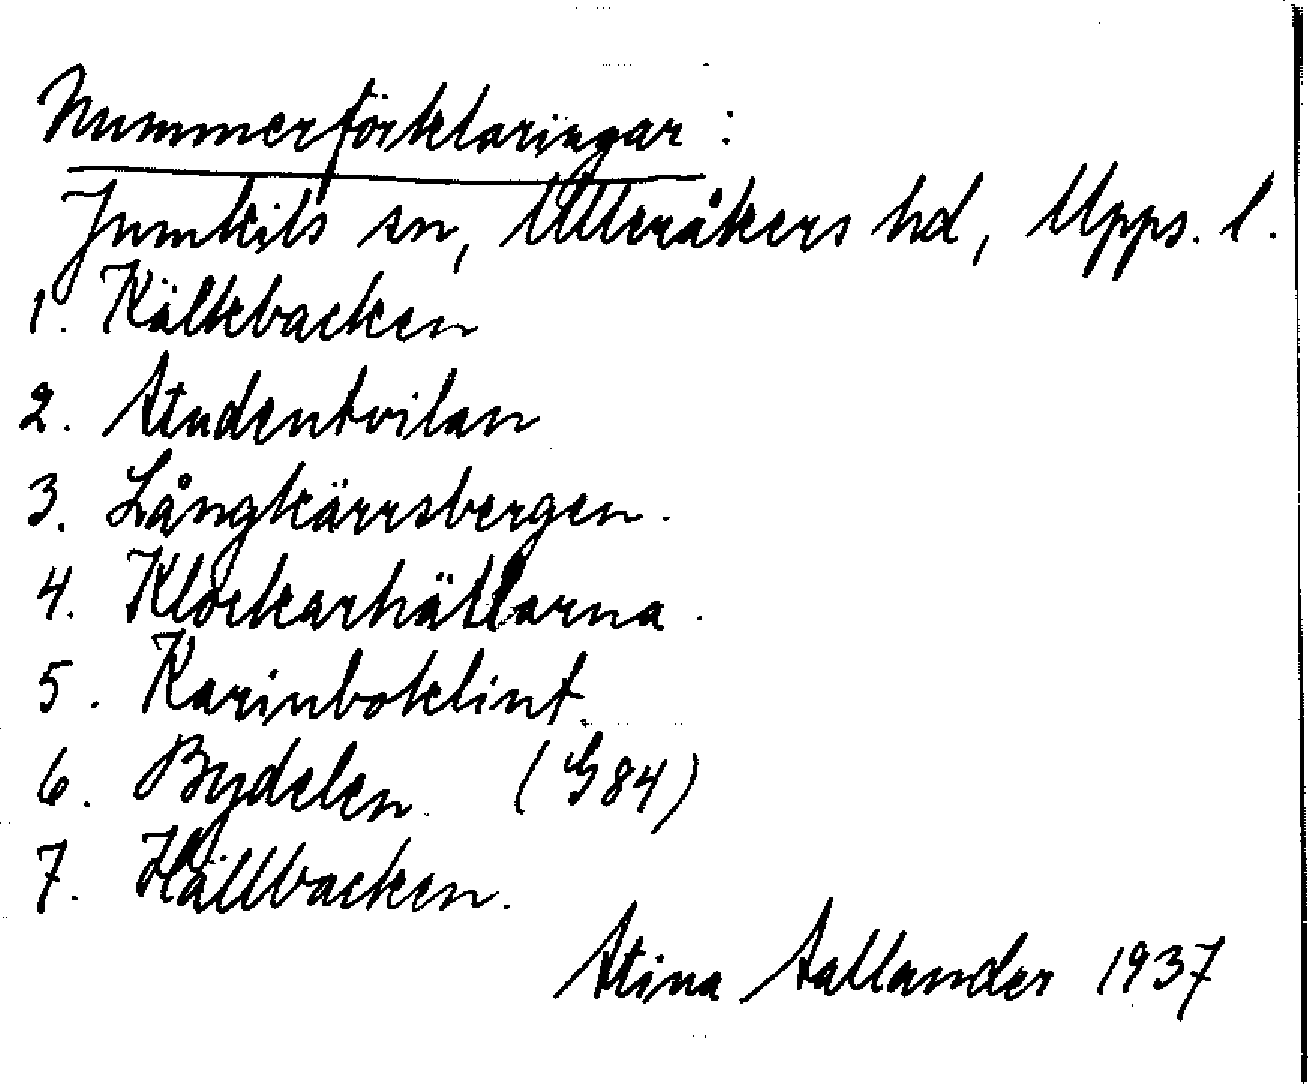 Nummerförklaringar:
Jumkils sn, Ulleråkers hd, Upps. l.
1. Kälkbacken
2. Studentvilan
3. Långkärrsbergen.
4. Klockarhällarna.
5. Karinboklint.
6. Bydelen. (G84)
7. Hällbacken.
Stina Sallander 1937